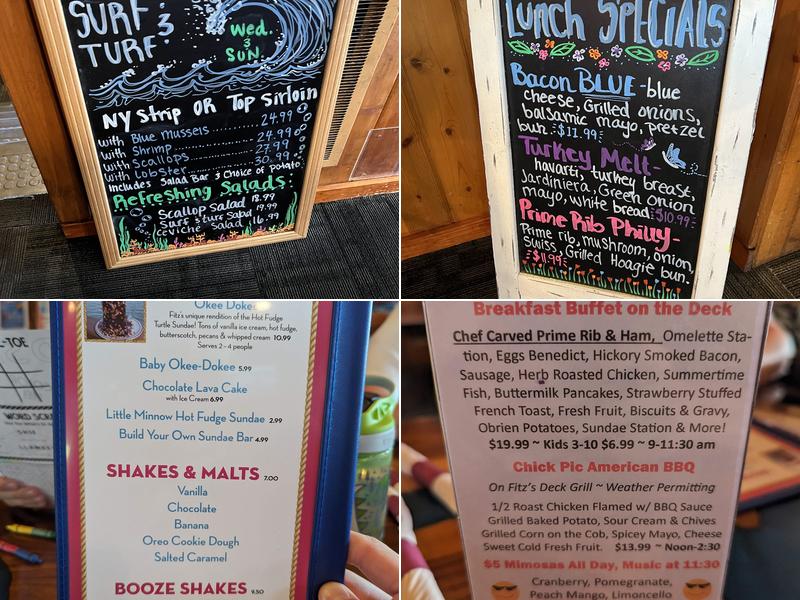 SURF &
TURF
Wed.
&
SUN.
NY Strip OR Top Sirloin
with Blue Mussels ........ 24.99
with Shrimp ........ 24.99
with Scallops ........ 27.99
with Lobster ........ 30.99
Includes Salad Bar & Choice of potato
Refreshing Salads:
Scallop Salad 18.99
Surf & Turf Salad 19.99
Ceviche Salad 16.99
Lunch SPECIALS
Bacon BLUE - blue
cheese, Grilled onions,
balsamic mayo, pretzel
bun $11.99
Turkey Melt -
havarti, turkey breast,
Jardiniera, Green Onion
mayo, white bread $10.99
Prime Rib Philly -
Prime rib, mushroom, onion,
Swiss, Grilled Hoagie bun.
$11.99
-TOE
WORD
Okee Dokee
Fitz's unique rendition of the Hot Fudge
Turtle Sundae! Tons of vanilla ice cream, hot fudge,
butterscotch, pecans & whipped cream 10.99
Serves 2 - 4 people
Baby Okee-Dokee 5.99
Chocolate Lava Cake
with Ice Cream 6.99
Little Minnow Hot Fudge Sundae 2.99
Build Your Own Sundae Bar 4.99
SHAKES & MALTS 7.00
Vanilla
Chocolate
Banana
Oreo Cookie Dough
Salted Caramel
BOOZE SHAKES 9.50
Breakfast Buffet on the Deck
Chef Carved Prime Rib & Ham, Omelette Sta-
tion, Eggs Benedict, Hickory Smoked Bacon,
Sausage, Herb Roasted Chicken, Summertime
Fish, Buttermilk Pancakes, Strawberry Stuffed
French Toast, Fresh Fruit, Biscuits & Gravy,
Obrien Potatoes, Sundae Station & More!
$19.99 ~ Kids 3-10 $6.99 ~ 9-11:30 am
Chick Pic American BBQ
On Fitz's Deck Grill ~ Weather Permitting
1/2 Roast Chicken Flamed w/ BBQ Sauce
Grilled Baked Potato, Sour Cream & Chives
Grilled Corn on the Cob, Spicey Mayo, Cheese
Sweet Cold Fresh Fruit. $13.99 ~ Noon-2:30
$5 Mimosas All Day, Music at 11:30
Cranberry, Pomegranate,
Peach Mango, Limoncello